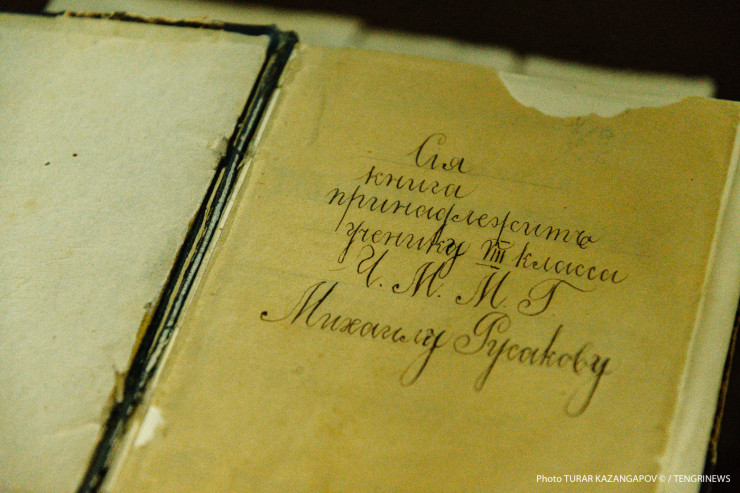 Сія
книга
принадлежитъ
ученику VIII класса
Ч. М. М. Г.
Михаилу Русакову
Photo TURAR KAZANGAPOV © / TENGRINEWS